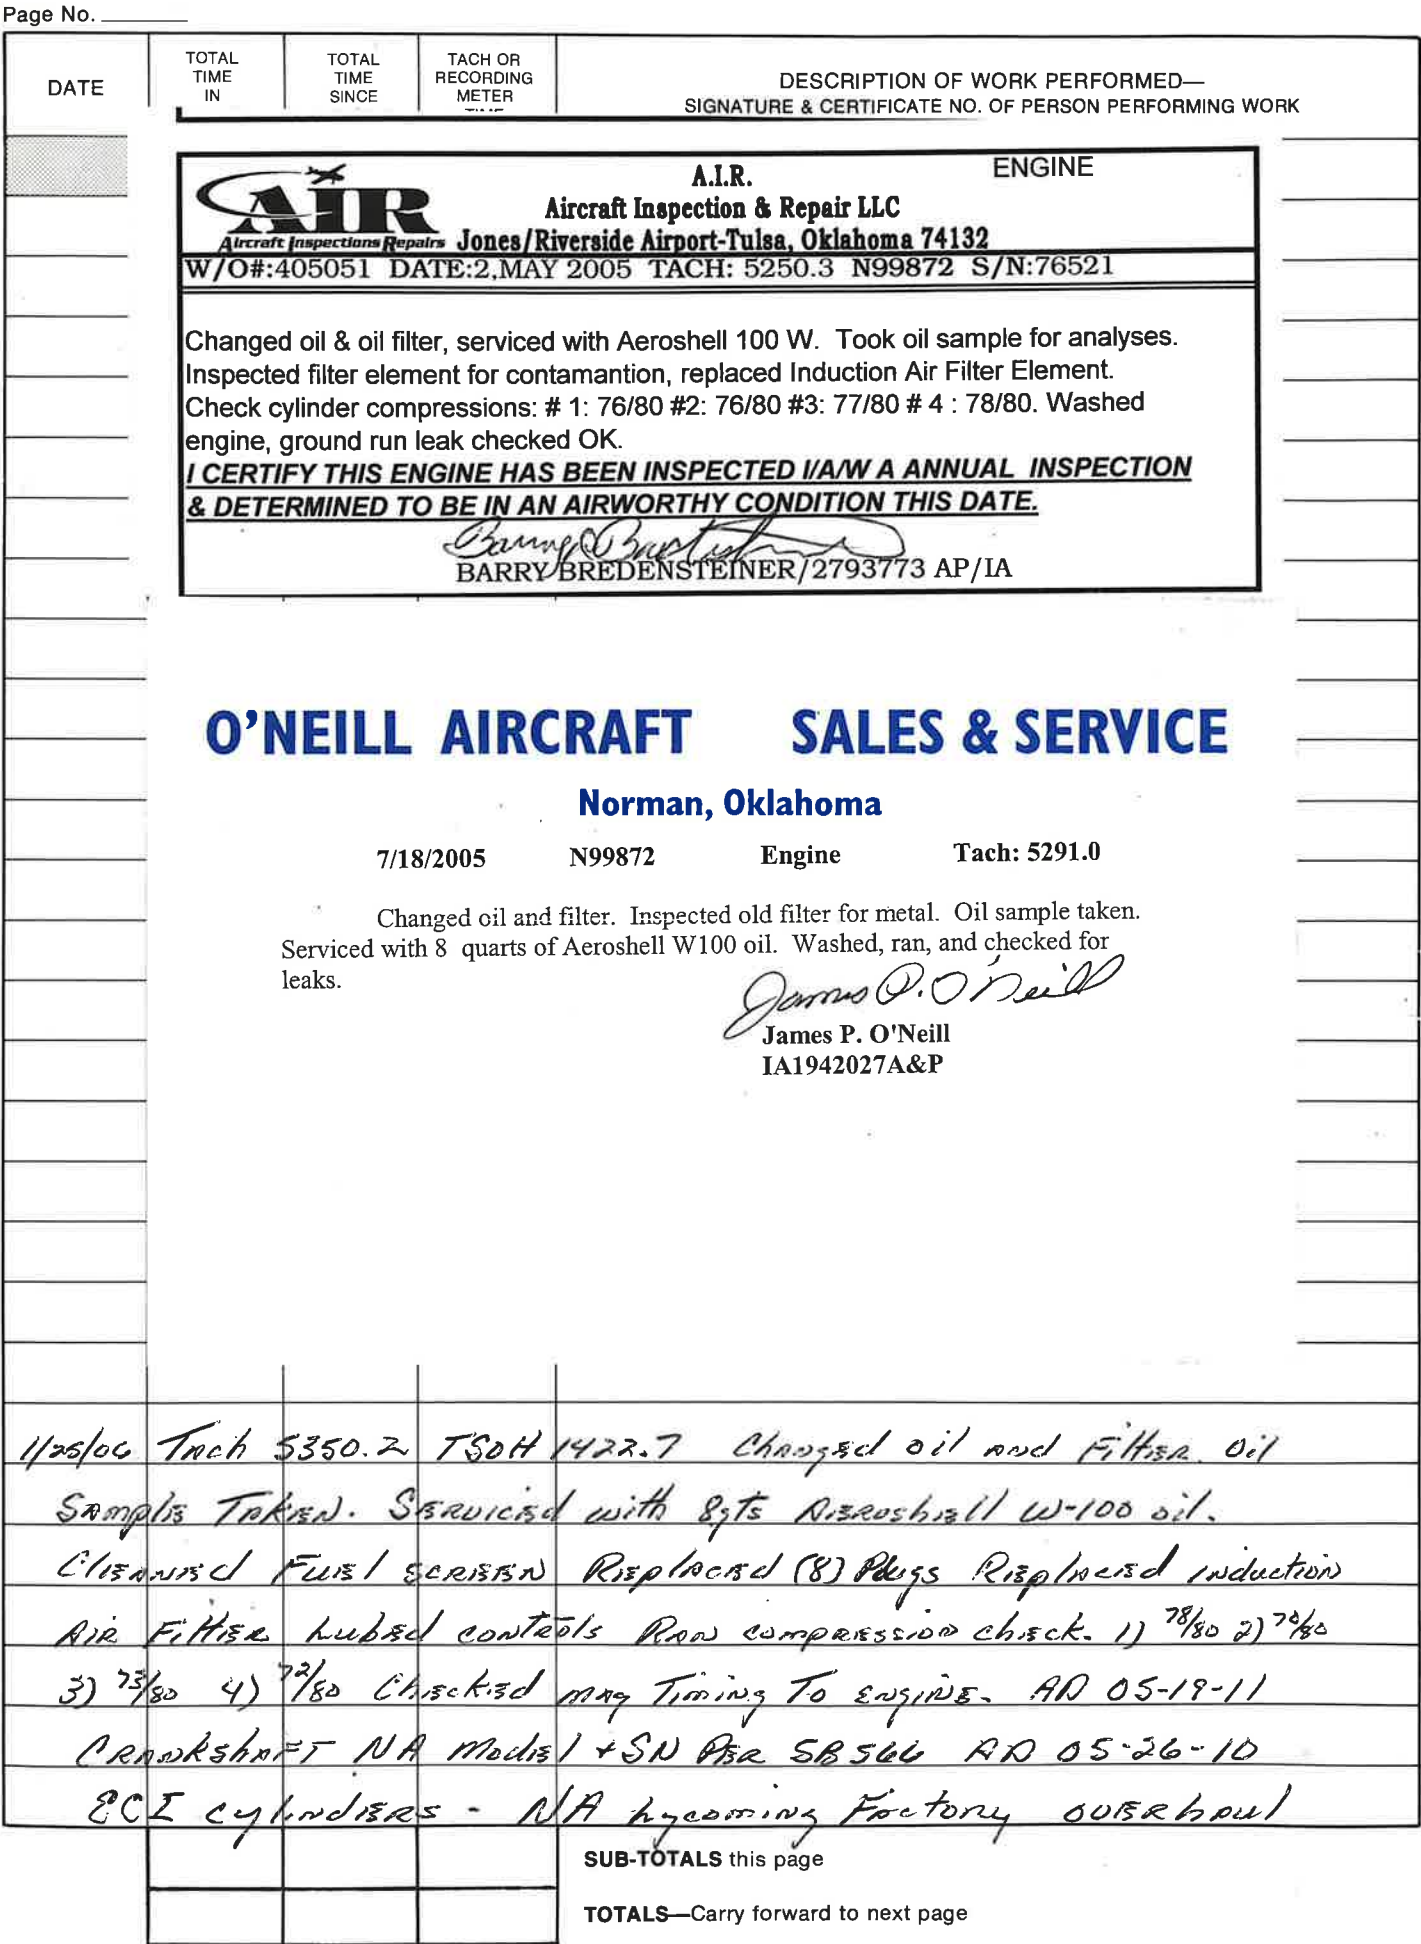 Page No.
DATE
TOTAL TIME IN
TOTAL TIME SINCE
TACH OR RECORDING METER
DESCRIPTION OF WORK PERFORMED—
SIGNATURE & CERTIFICATE NO. OF PERSON PERFORMING WORK
AIR
Aircraft Inspections Repairs
A.I.R.
ENGINE
Aircraft Inspection & Repair LLC
Jones/Riverside Airport-Tulsa, Oklahoma 74132
W/O#:405051 DATE:2,MAY 2005 TACH: 5250.3 N99872 S/N:76521
Changed oil & oil filter, serviced with Aeroshell 100 W. Took oil sample for analyses.
Inspected filter element for contamantion, replaced Induction Air Filter Element.
Check cylinder compressions: # 1: 76/80 #2: 76/80 #3: 77/80 # 4 : 78/80. Washed
engine, ground run leak checked OK.
I CERTIFY THIS ENGINE HAS BEEN INSPECTED I/A/W A ANNUAL INSPECTION
& DETERMINED TO BE IN AN AIRWORTHY CONDITION THIS DATE.
BARRY BREDENSTEINER/2793773 AP/IA
O'NEILL AIRCRAFT SALES & SERVICE
Norman, Oklahoma
7/18/2005 N99872 Engine Tach: 5291.0
Changed oil and filter. Inspected old filter for metal. Oil sample taken.
Serviced with 8 quarts of Aeroshell W100 oil. Washed, ran, and checked for
leaks.
James P. O'Neill
James P. O'Neill
IA1942027A&P
1/25/06 Tach 5350.2 TSOH 1422.7 Changed oil and Filter. Oil
Sample Taken. Serviced with 8qts Aeroshell W-100 oil.
Cleaned Fuel screen Replaced (8) Plugs Replaced induction
Air Filter Lubed controls Ran compression check. 1) 78/80 2) 70/80
3) 73/80 4) 72/80 Checked mag Timing To engine. AD 05-19-11
Crankshaft NA Model + SN Per SB566 AD 05-26-10
ECI cylinders - NA Lycoming Factory overhaul
SUB-TOTALS this page
TOTALS—Carry forward to next page